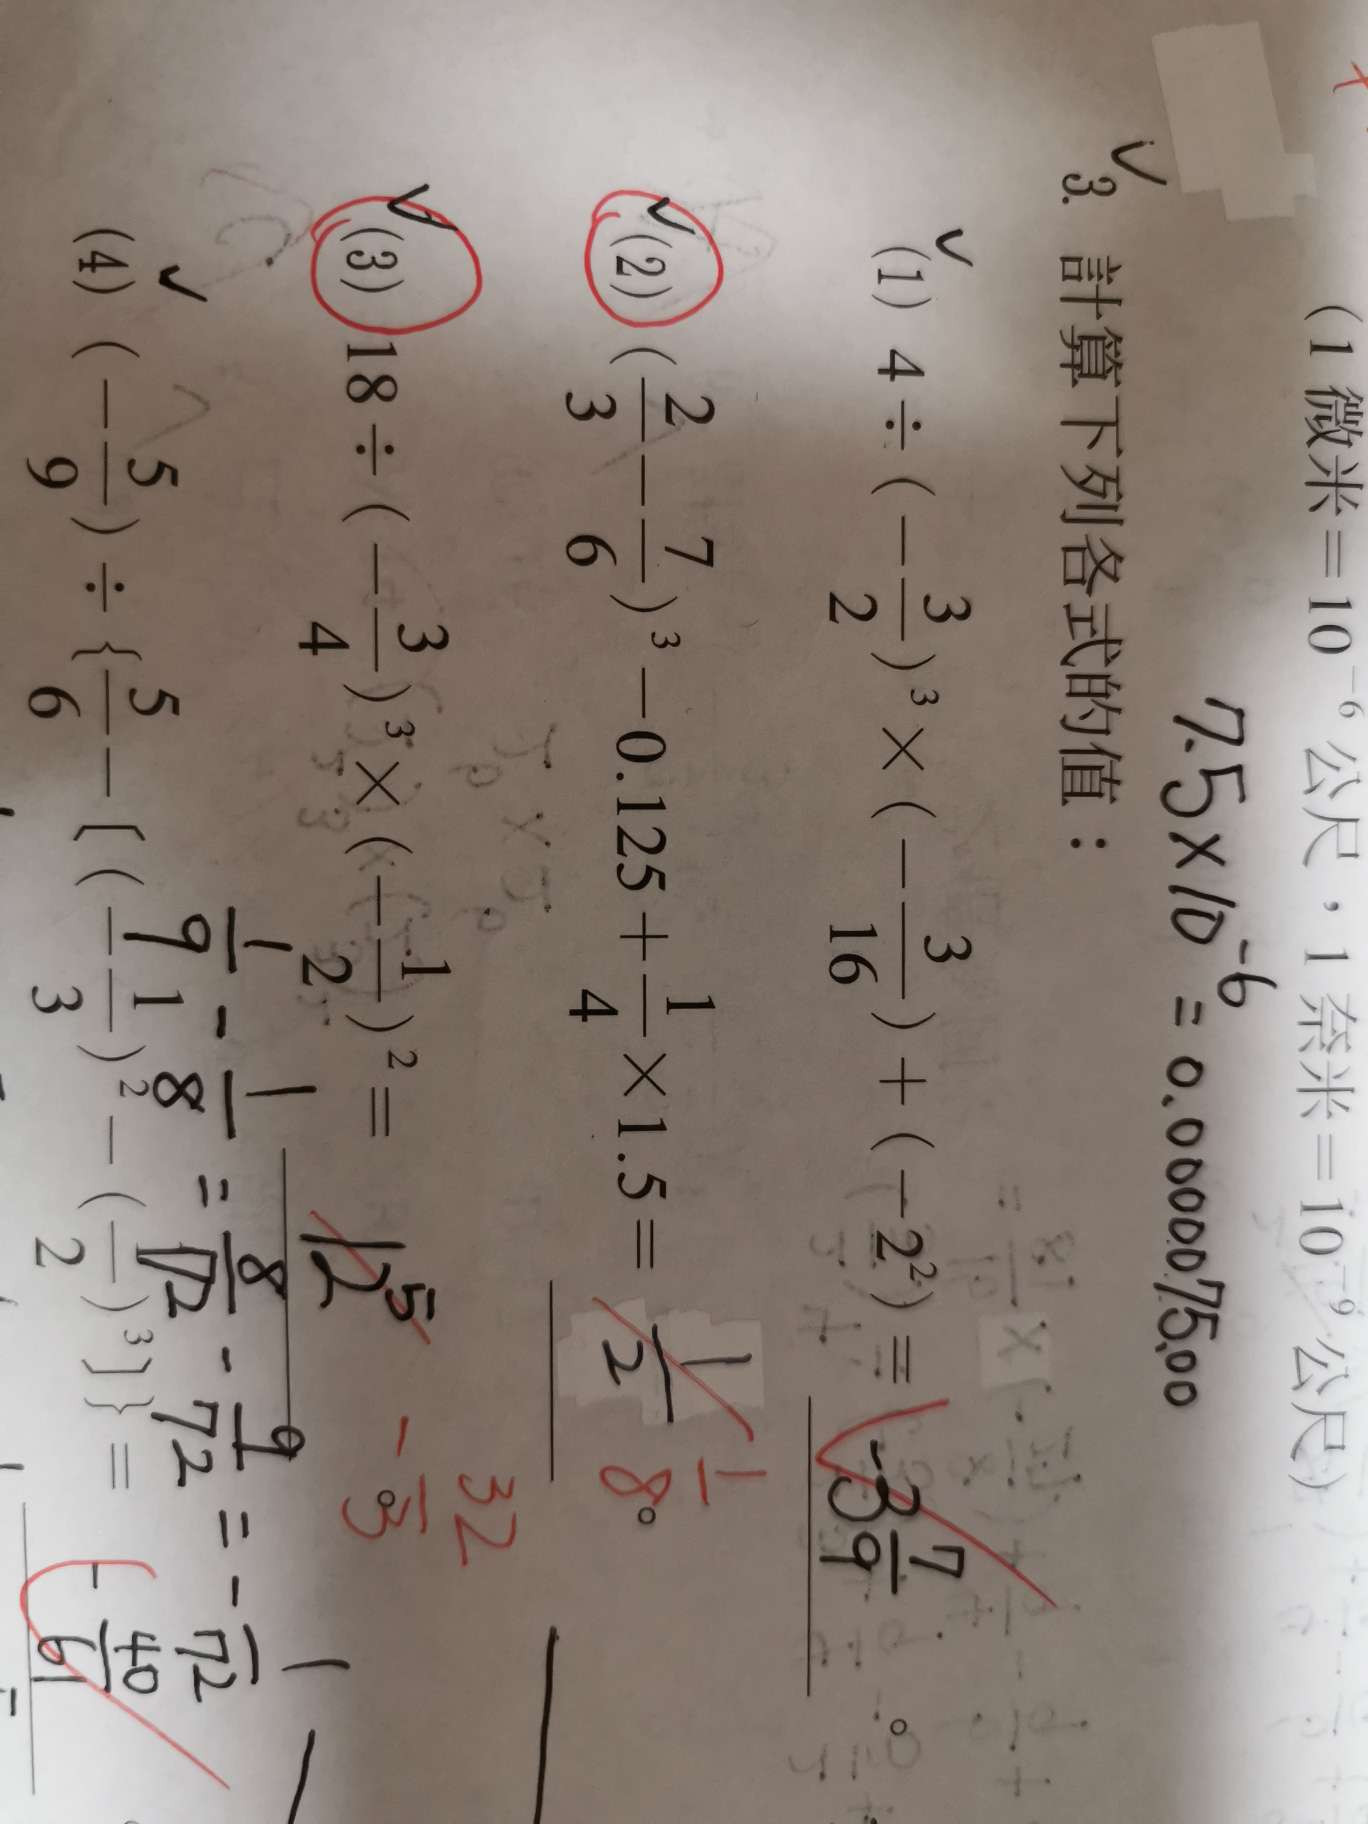 (1微米=10⁻⁶公尺，1奈米=10⁻⁹公尺)
7.5×10⁻⁶=0.000007500
3. 計算下列各式的值：
(1) 4÷(-3/2)³×(-3/16)+(-2²)= -3 7/9 。
(2) (2/3-7/6)³-0.125+1/4×1.5= 1/2 1/8 。
(3) 18÷(-3/4)³×(-1/2)²= 12 5 -32/3 。
1/9-1/8=8/72-9/72=-1/72
(4) (-5/9)÷{5/6-[(-1/3)²-(1/2)³]}= -40/61